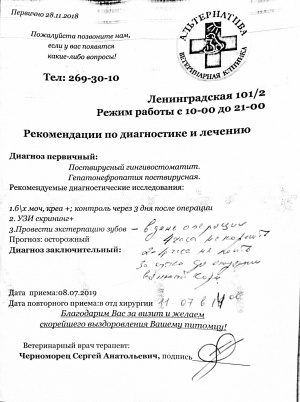 Первично 28.11.2018
АЛЬТЕРНАТИВА
ВЕТЕРИНАРНАЯ КЛИНИКА
Пожалуйста позвоните нам,
если у вас появятся
какие-либо вопросы!
Тел: 269-30-10
Ленинградская 101/2
Режим работы с 10-00 до 21-00
Рекомендации по диагностике и лечению
Диагноз первичный:
Поствирусный гингивостоматит.
Гепатонефропатия поствирусная.
Рекомендуемые диагностические исследования:
1.б\х моч, креа +; контроль через 3 дня после операции
2. УЗИ скрининг+
3.Провести экстерпацию зубов – в день операции
Прогноз: осторожный
4 часа не
Диагноз заключительный:
2-4 часа не пить
За
Дата приема:08.07.2019
Дата повторного приема:в отд хирургии 11.07 в 14
Благодарим Вас за визит и желаем
скорейшего выздоровления Вашему питомцу!
Ветеринарный врач терапевт:
Черноморец Сергей Анатольевич, подпись